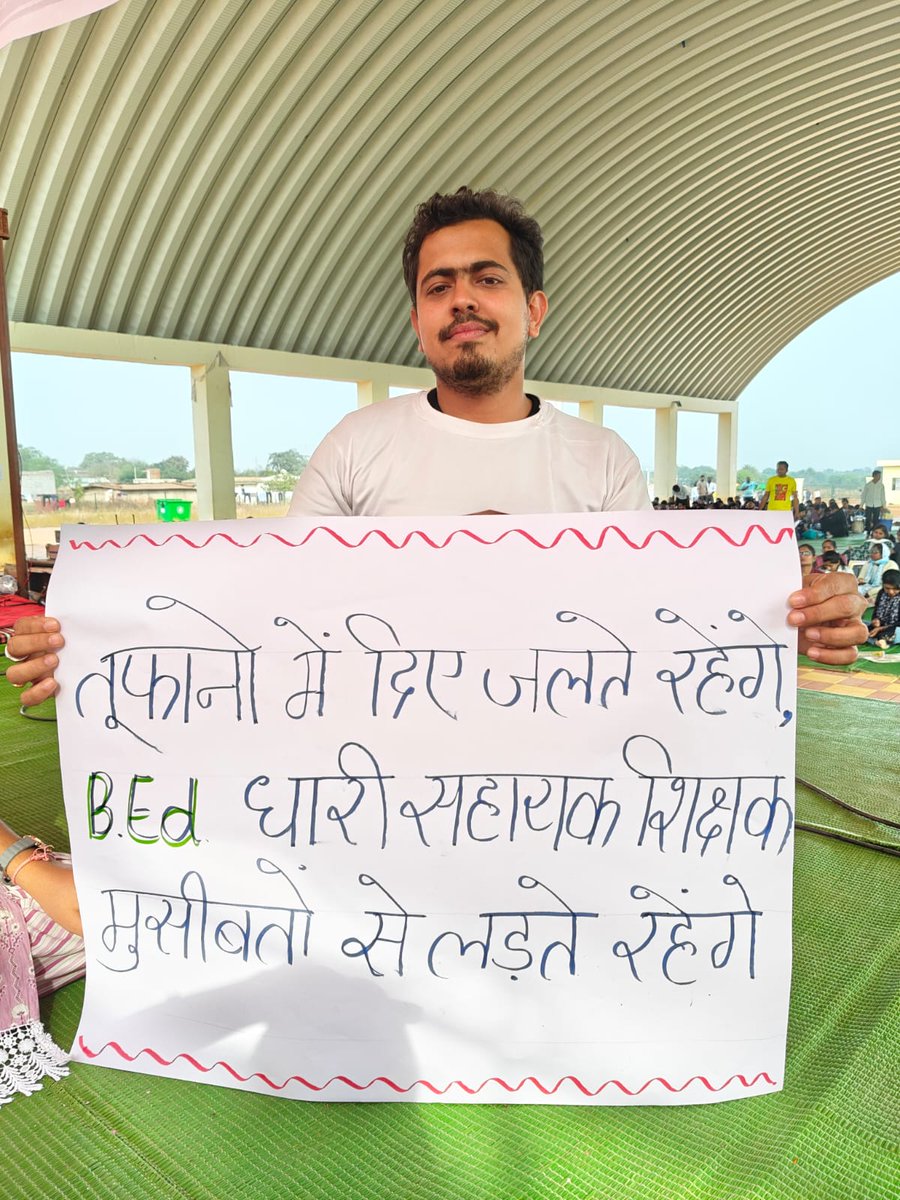 तूफानो में दिए जलते रहेंगे,
B.Ed. धारी सहायक शिक्षक
मुसीबतों से लड़ते रहेंगे